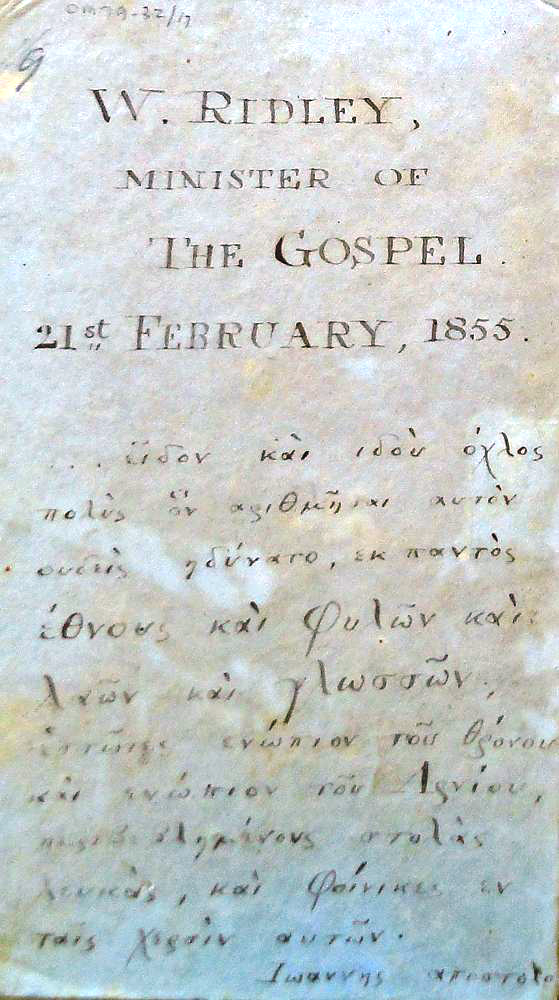 OM79-32/17
W. RIDLEY,
MINISTER OF
THE GOSPEL.
21st FEBRUARY, 1855.
... ἶιδον κὰι ιδοὺ όχλος
πολὺς ὃν αριθμῆσαι αυτὸν
ουδεὶς ηδύνατο, εκ παντὸς
έθνους κὰι φυλῶν κὰι
λαῶν κὰι γλωσσῶν,
ἑστῶτες ενώπιον τοῦ θρόνου
κὰι ενώπιον τοῦ Αρνίου,
περιβεβλημένους στολὰς
λευκὰς, κὰι φοίνικες εν
ταῖς χερσὶν αυτῶν.
Ιωαννης αποστολο